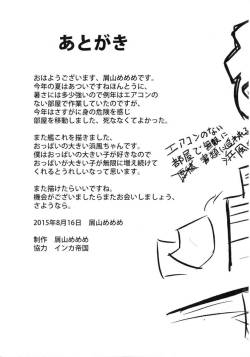 あとがき
おはようございます、屑山めめめです。
今年の夏はあついですねほんとうに、
暑さには多少強いので例年はエアコンの
ない部屋で作業していたのですが、
今年はさすがに身の危険を感じ
部屋を移動しました、死ななくてよかった。
また艦これを描きました、
おっぱいの大きい浜風ちゃんです。
僕はおっぱいの大きい子が好きなので
おっぱいの大きい子が無限に増え続けて
くれるとうれしいなって思います。
また描けたらいいですね。
機会がございましたらまたお会いしましょう、
さようなら。
2015年8月16日　屑山めめめ
制作　屑山めめめ
協力　インカ帝国
エアコンのない
部屋で